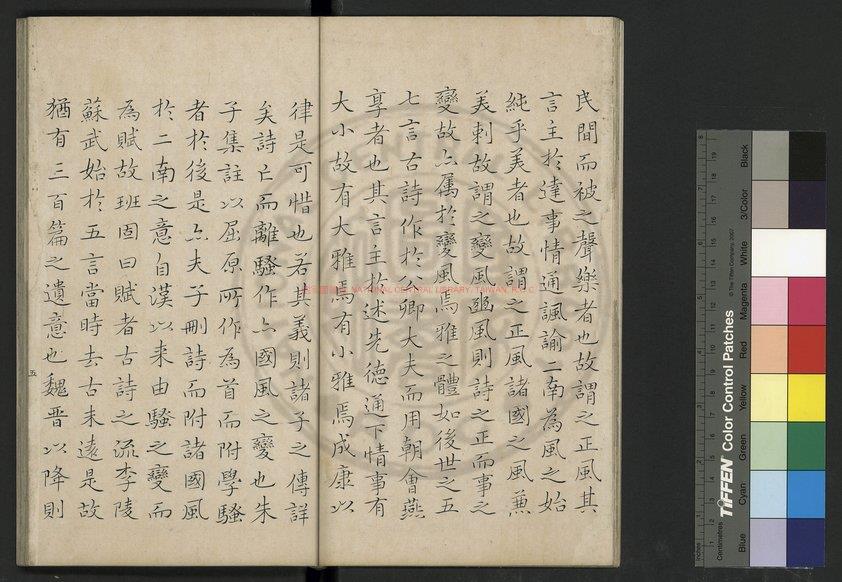 民間而被之聲樂者也故謂之正風其
言主於達事情通諷諭二南為風之始
純乎美者也故謂之正風諸國之風兼
美刺故謂之變風豳風則詩之正而事之
變故亦属於變風焉雅之體如後世之五
七言古詩作於公卿大夫而用朝會燕
享者也其言主於述先德通下情事有
大小故有大雅焉有小雅焉成康以
律是可惜也若其義則諸子之傳詳
矣詩亡而離騷作亦國風之變也朱
子集註以屈原所作為首而附學騷
者於後是亦夫子刪詩而附諸國風
於二南之意自漢以来由騷之變而
為賦故班固曰賦者古詩之流李陵
蘇武始於五言當時去古未遠是故
猶有三百篇之遺意也魏晋以降則
五
NATIONAL CENTRAL LIBRARY, TAIWAN, R.O.C
TIFFEN Color Control Patches
© The Tiffen Company, 2007
Inches
Centimetres
Blue
Cyan
Green
Yellow
Red
Magenta
White
3/Color
Black